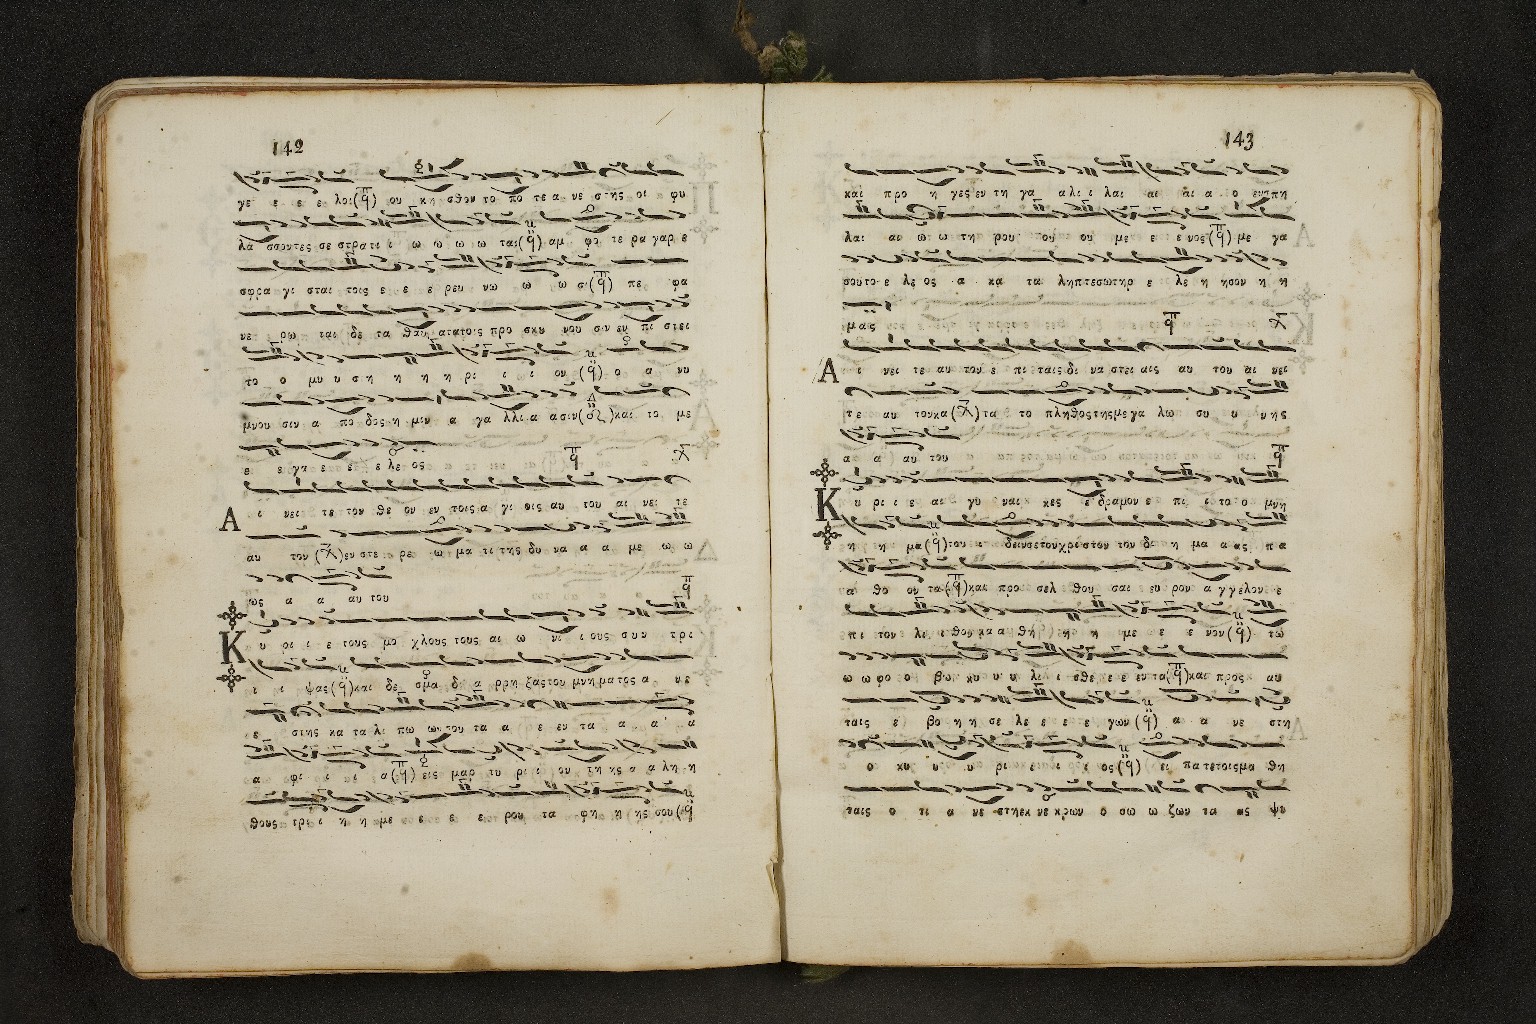 142
γε ε ε ε λοι(π̅q̈) ου κη σθον το πο τε α νε στης οι φυ
λα σσοντες σε στρατι ι ω ω ω ω ται(q̈) αμ φο τε ρα γαρ ε
σφρα γι σται τοις ε ε ε ρευ νω ω ω σι(π̅q̈) πε φα
νε ρω ται δε τα θαυ ατατοις προ σκυ νου σιν εν πι στει
το ο μυ υ ση η η η ρι ι ι ον (q̈) ο α νυ
μνου σιν α πο δος η μιν α γα λλι α ασιν( )και το με
ε ε γα ε ε ε ε λε ος
Α ι νει τε τον θε ον εν τοις α γι οις αυ του αι νει τε
αυ τον ( )εν στε ε ρε ω μα τι της δυ να α α με ω ω
ως α α αυ του
Κ υ ρι ι ε τους μο χλους τους αι ω νι ι ους συν τρι
ι ι ψας(q̈)και δε σμα δι α ρρη ξας του μνη ματος α νε
ε στης κα τα λι πω ων του τα α ε εν τα α α α
α φι ι ι α(π̅q̈) εις μαρ τυ ρι ι ον τη ης α α λη η
θους τρι ι η η με ε ε ε ε ρου τα φη η ης σου(q̈
143
και προ η γες εν τη γα α λι ι λαι αι αι α ο εν σπη
λαι αι ω ω τη ρου ου ου ου με ε ε νος(π̅q̈) με γα
σου το ε λε ος α κα τα ληπτεσωτηρ ε λε η ησον η η
μας
Α ι νει τε αυ τον ε πι ταις δυ να στει αις αυ του αι νει
τε αυ τον κα( ) τα το πληθος της με γα λω συ υ υ νης
α α αυ του
Κ υ ρι ι ε αι γυ ναι κες ε δραμον ε πι ι το ο μνη
η η μα(q̈)του ι δειν σε τον χριστον τον δι η μα α ας πα
α θο ον τα(π̅q̈)και προ σελ θου σαι ευ ρον α γγελον ε
πι τον λι ι θον κα α θη η η η με ε ε νον(q̈) τω
ω ω φο ο βω κυ υ υ λι ι σθε ε ε εν τα(π̅q̈)και προς αυ
ταις ε βο η η σε λε ε ε ε γων(q̈) α α νε στη
ο κυ υ υ υ ρι ι ι ι ι ος(q̈) ει πα τε τοις μα θη
ταις ο τι α νε στη εκ νε κρων ο σω ω ζων τα ας ψυ